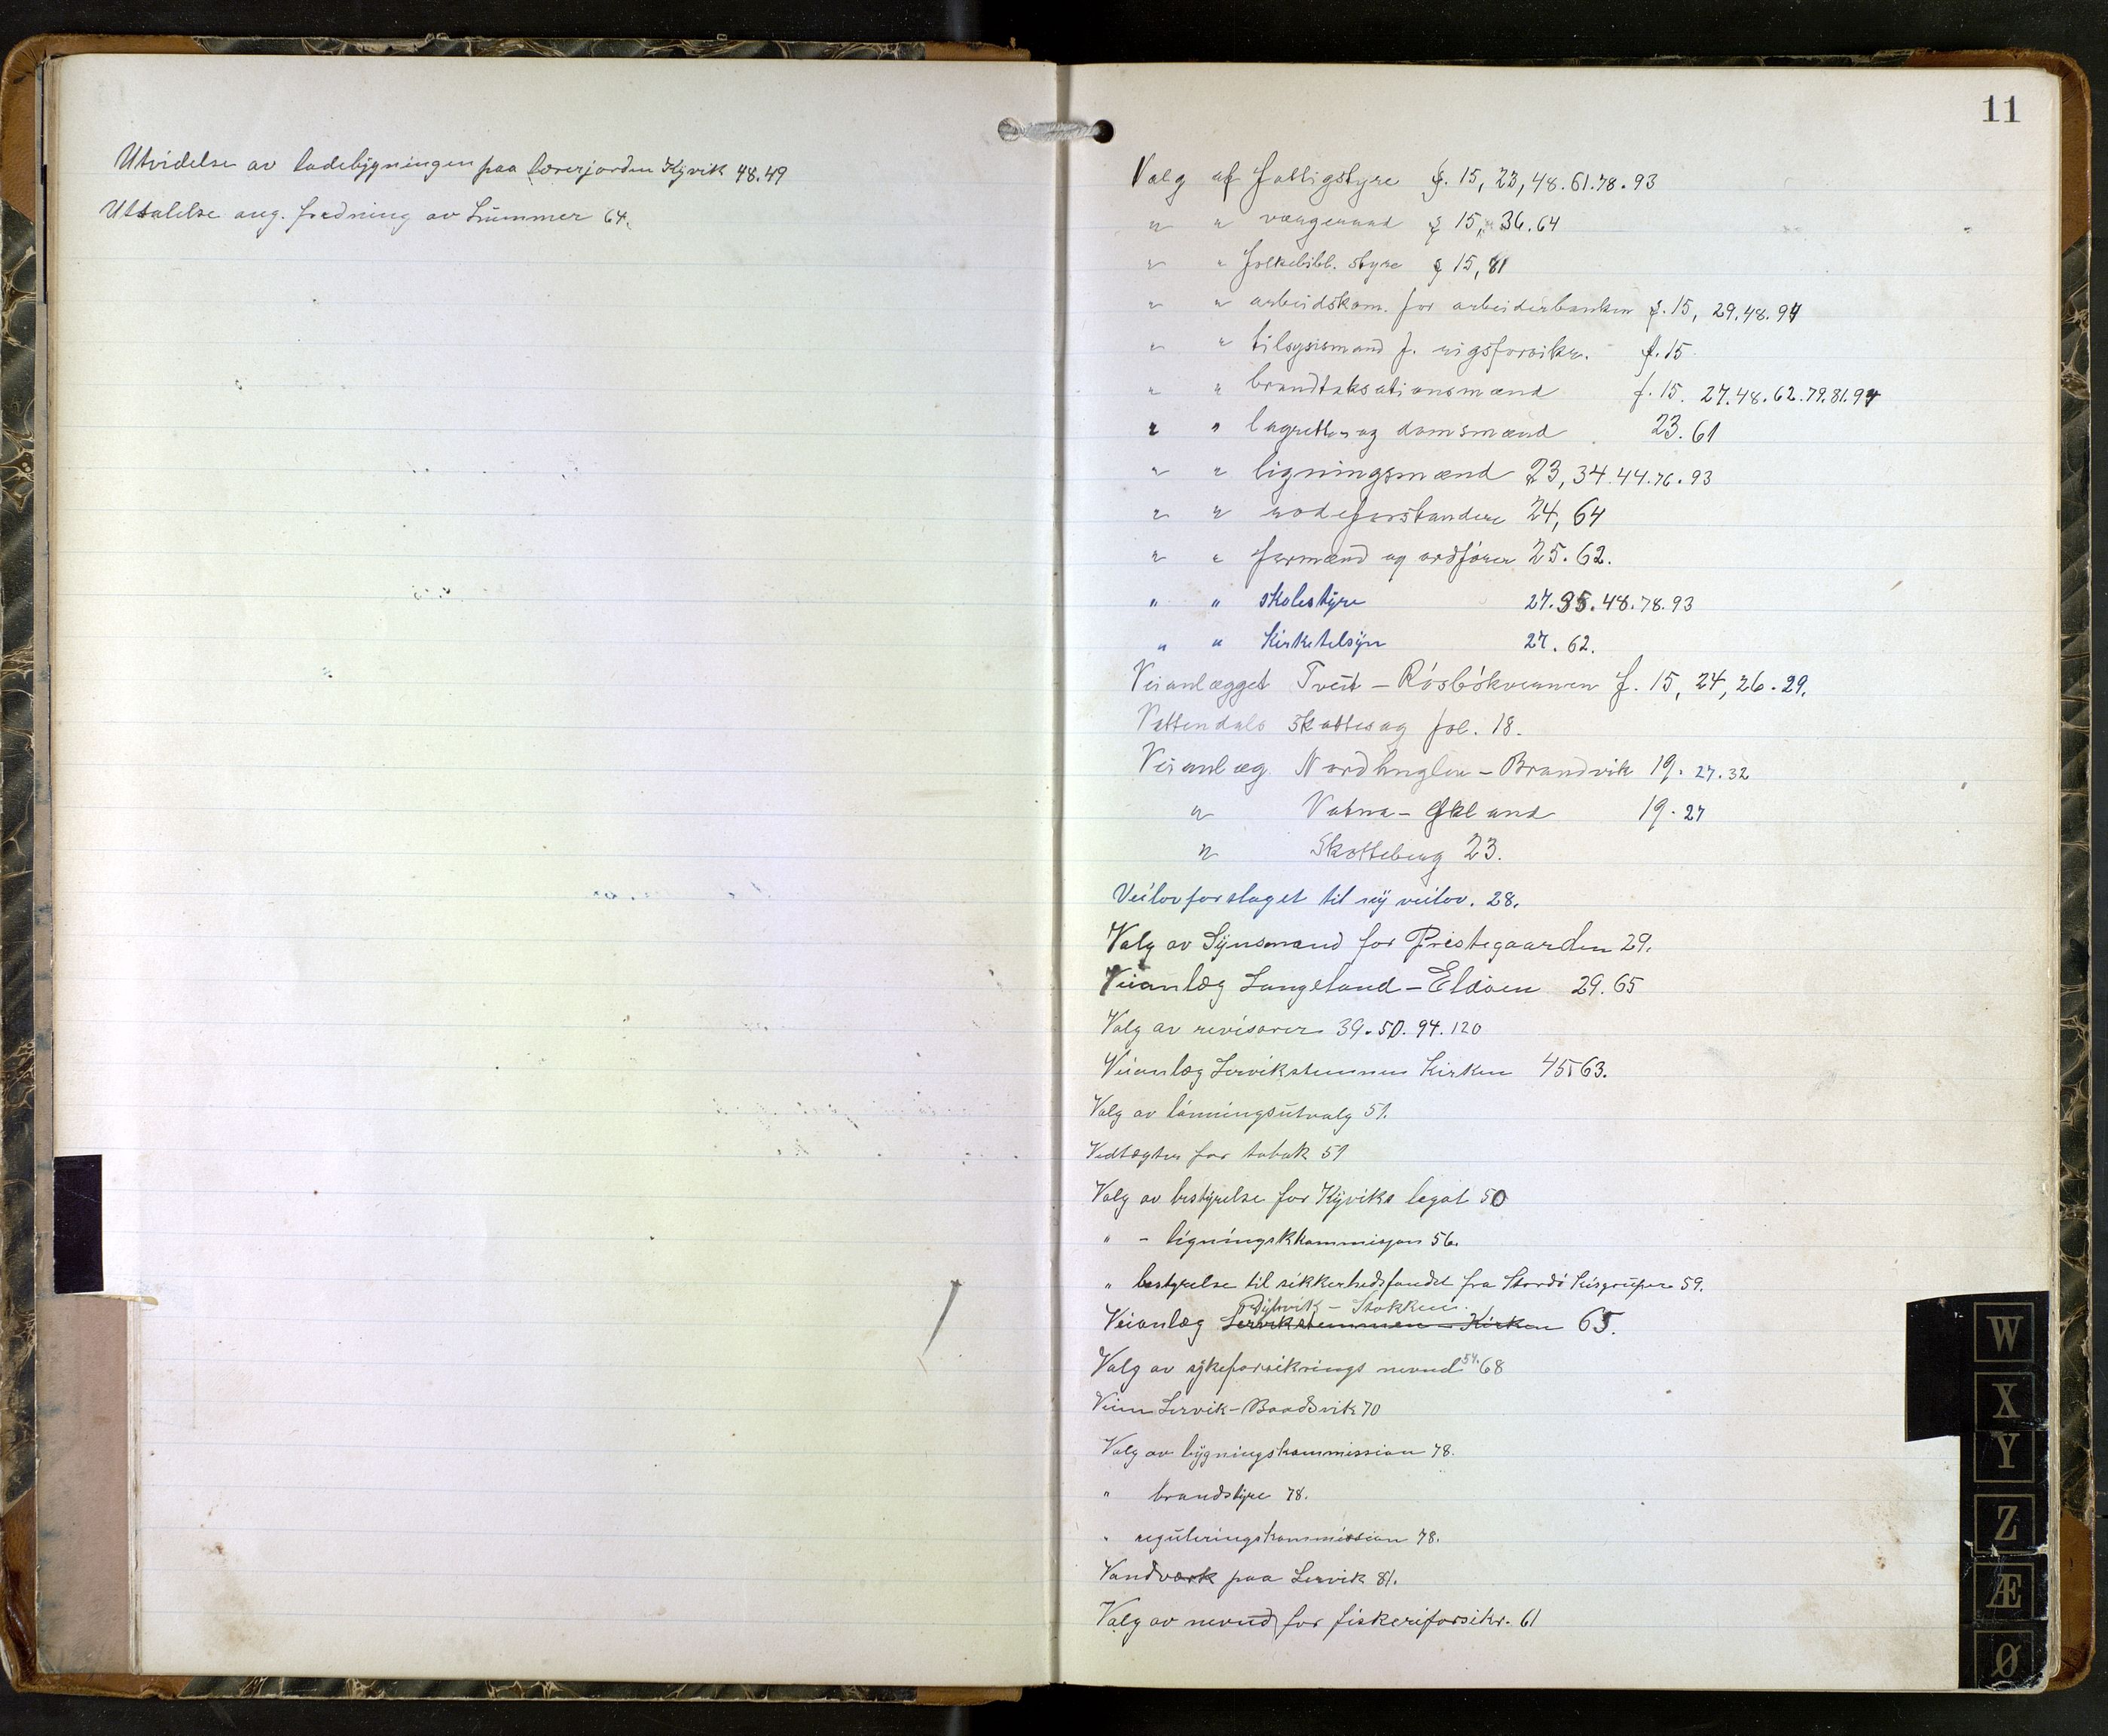 Utvidelse av ladebygningen paa lærerjorden Kyvik 48.49
Uttalelse ang. fredning av hummer 64.
11
Valg af fattigstyre f. 15, 23, 48. 61. 78. 93
" " vergeraad f 15, 36. 64
" " folkebibl. styre f 15, 81
" " arbeidskom. for arbeiderbanken f. 15, 29. 48. 94
" " tilsynsmand f. rigsforsikr. f. 15
" " brandtaksationsmænd f. 15. 27. 48. 62. 79. 81. 94
" " lagrette og domsmænd 23. 61
" " ligningsmænd 23, 34. 44. 76. 93
" " rodeforstandere 24, 64
" " formænd og ordfører 25. 62.
" " skolestyre 27. 35. 48. 78. 93
" " Kirketilsyn 27. 62.
Veianlægget Tveit – Rösbökvernen f. 15, 24, 26. 29.
Vattendals skattesag fol. 18.
Veianlæg Nordhuglen – Brandvik 19. 27. 32
" Vatna – Økland 19. 27
" Skotteberg 23.
Veilovforslaget til ny veilov. 28.
Valg av Synsmænd for Prestegaarden 29.
Veianlæg Langeland – Eldøen 29. 65
Valg av revisorer 39. 50. 94. 120
Veianlæg Lervikstemmen Kirken 45. 63.
Valg av lønningsutvalg 51.
Vedtægter for tobak 51
Valg av bestyrelse for Kyviks legat 50
" – ligningskkommisjon 56.
" bestyrelse til sikkerhedsfondet fra Stordö Kisgruper 59.
Dybvik – Stokken.
Veianlæg Lervikstemmen – Kirken 65.
Valg av sykeforsikrings nevnd 54. 68
Veien Lervik – Baadsvik 70
Valg av bygningskommission 78.
" brandstyre 78.
" reguleringskommission 78.
Vandværk paa Lervik 81.
Valg av nevnd for fiskeriforsikr. 61
W
X
Y
Z
Æ
Ø